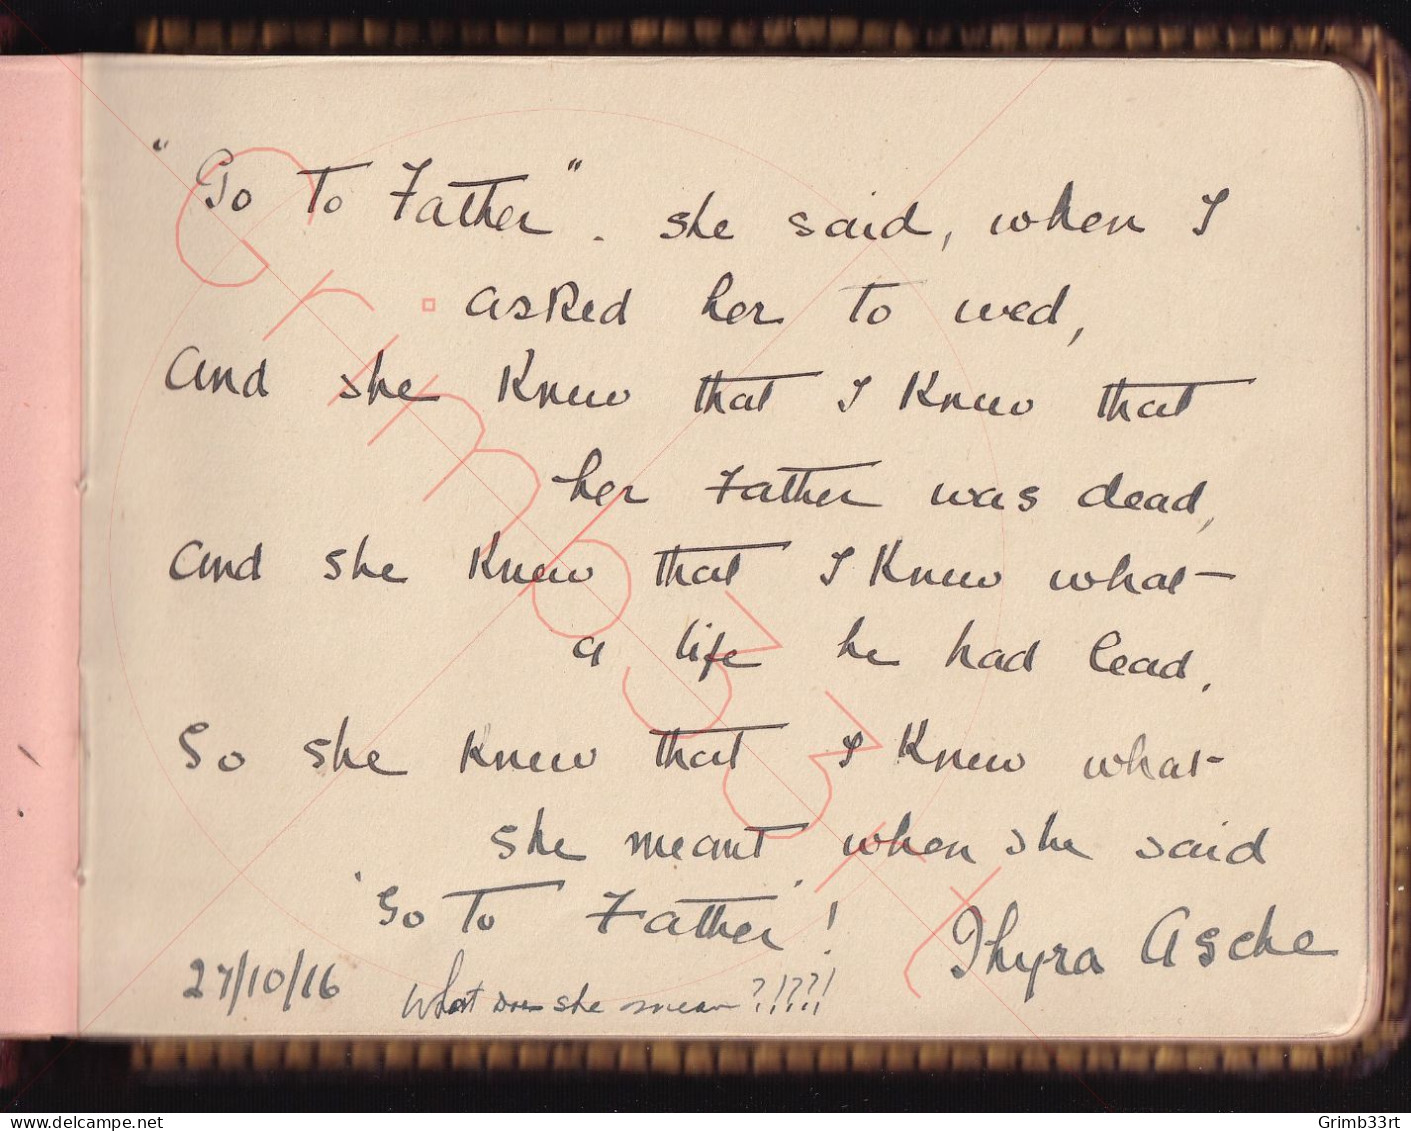 "Go To Father". she said, when I
asked her to wed,
And she knew that I knew that
her Father was dead,
And she knew that I knew what
a life he had lead,
So she knew that I knew what
she meant when she said
'Go To Father'!
Thyra Asche
27/10/16
What does she mean?!??!!
Grimb33rt
www.delcampe.net
Grimb33rt